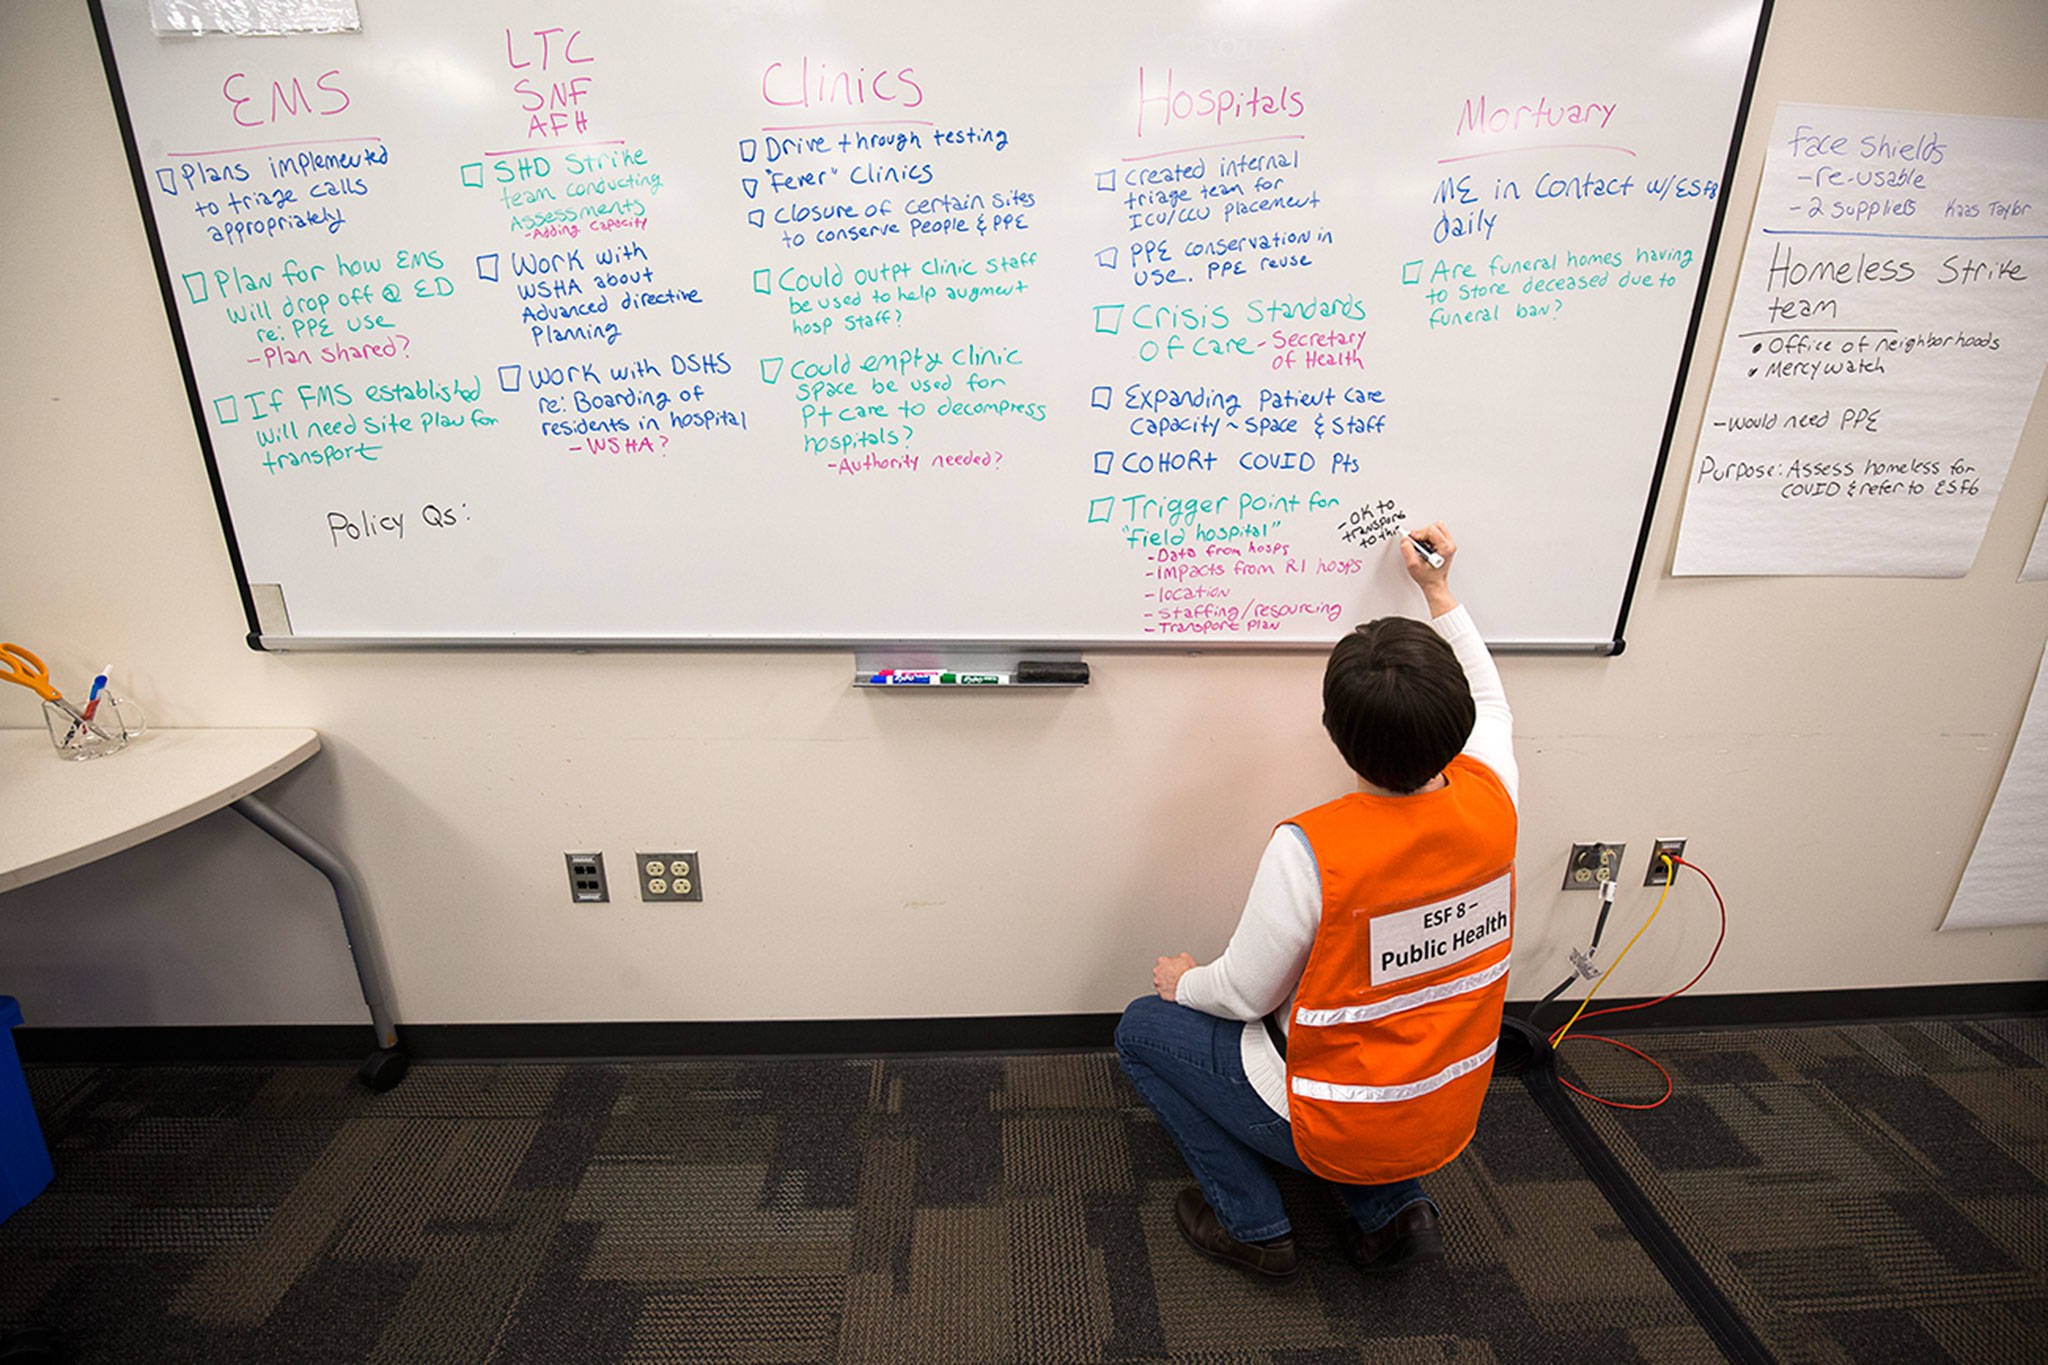 EMS
Plans implemented
to triage calls
appropriately
Plan for how EMS
will drop off @ ED
re: PPE use
- Plan shared?
If FMS established
will need site plan for
transport
Policy Qs:
LTC
SNF
AFH
SHD Strike
team conducting
Assessments
- Adding capacity
Work with
WSHA about
Advanced directive
Planning
Work with DSHS
re: Boarding of
residents in hospital
- WSHA?
Clinics
Drive through testing
"Fever" Clinics
Closure of certain sites
to conserve People & PPE
Could outpt clinic staff
be used to help augment
hosp staff?
Could empty clinic
space be used for
Pt care to decompress
hospitals?
- Authority needed?
Hospitals
created internal
triage team for
ICU/CCU placement
PPE conservation in
use. PPE reuse
Crisis Standards
of care - Secretary
of Health
Expanding Patient Care
Capacity ~ Space & Staff
COHORT COVID Pts
Trigger point for
"field hospital"
- Data from hosps
- impacts from R1 hosps
- location
- Staffing/resourcing
- Transport plan
- OK to
transport
to this
Mortuary
ME in contact w/ESF8
daily
Are funeral homes having
to store deceased due to
funeral ban?
Face Shields
- re-usable
- 2 suppliers Kaas Taylor
Homeless Strike
team
• Office of neighborhoods
• Mercy watch
- would need PPE
Purpose: Assess homeless for
COVID & refer to ESF6
ESF 8 –
Public Health